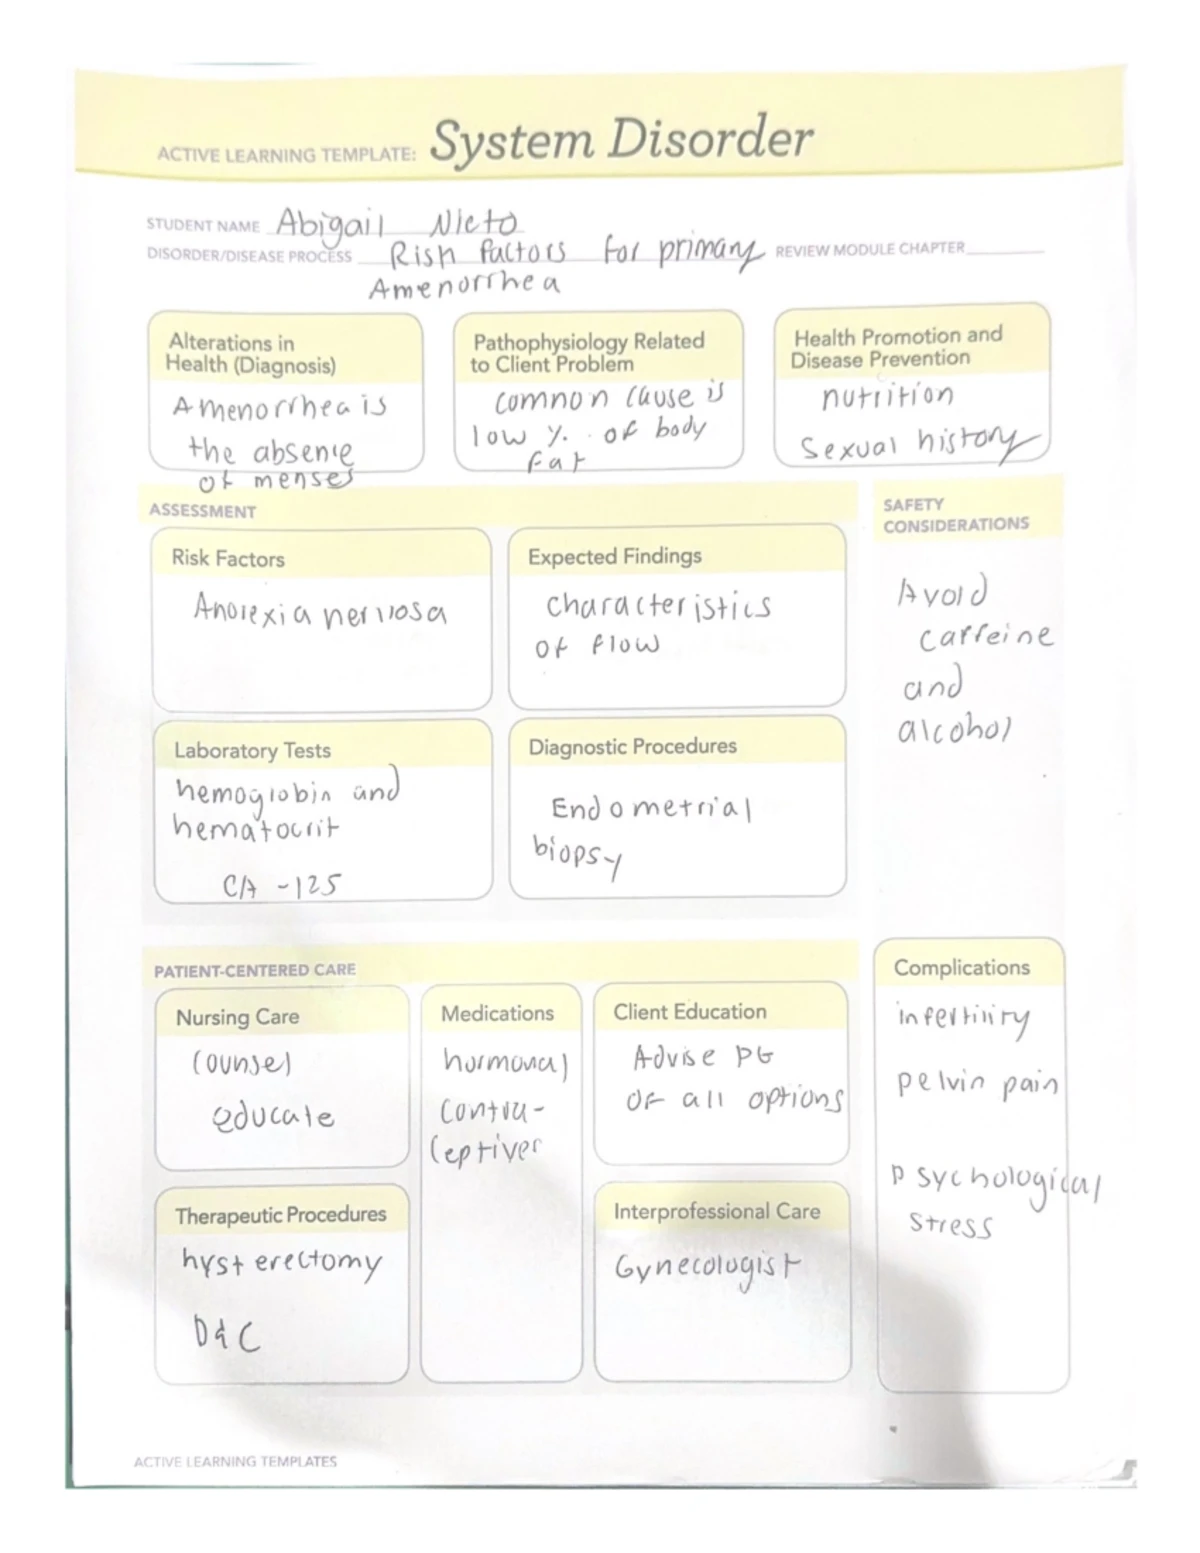 ACTIVE LEARNING TEMPLATE: System Disorder
STUDENT NAME Abigail Nieto
DISORDER/DISEASE PROCESS Risk factors for primary REVIEW MODULE CHAPTER
Amenorrhea
Alterations in
Health (Diagnosis)
Amenorrhea is
the absence
of menses
Pathophysiology Related
to Client Problem
common cause is
low % of body
fat
Health Promotion and
Disease Prevention
nutrition
sexual history
ASSESSMENT
Risk Factors
Anorexia nervosa
Expected Findings
characteristics
of flow
Laboratory Tests
hemoglobin and
hematocrit
CA-125
Diagnostic Procedures
Endometrial
biopsy
SAFETY
CONSIDERATIONS
Avoid
caffeine
and
alcohol
PATIENT-CENTERED CARE
Nursing Care
counsel
educate
Medications
hormonal
contra-
ceptives
Client Education
Advise pt
of all options
Therapeutic Procedures
hysterectomy
D&C
Interprofessional Care
Gynecologist
Complications
infertility
pelvin pain
psychological
stress
ACTIVE LEARNING TEMPLATES